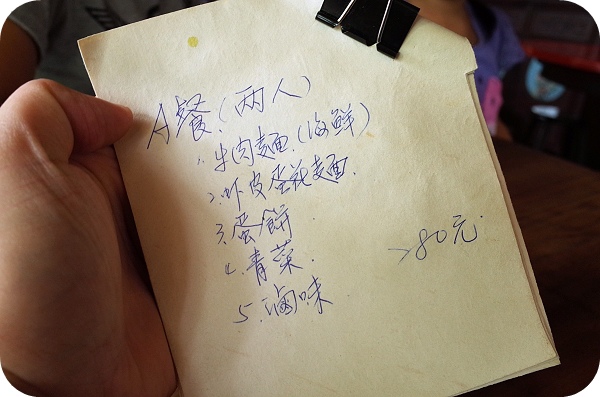 A餐.(两人)
1.牛肉麵(海鮮)
2.虾皮蛋花麵.
3.蛋餅.
4.青菜.
5.滷味
280元.